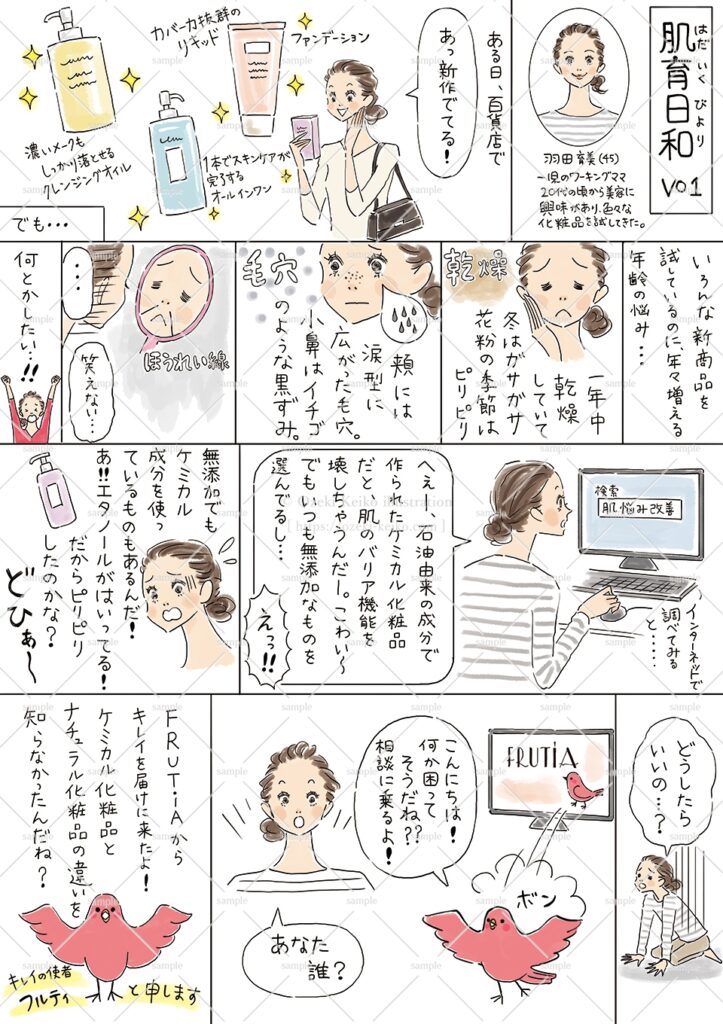 肌育日和
はだ いく びより
VO1
羽田育美(45)
一児のワーキングママ
20代の頃から美容に
興味があり、色々な
化粧品を試してきた。
ある日、百貨店で
あっ新作でてる!
ファンデーション
カバー力抜群の
リキッド
濃いメークも
しっかり落とせる
クレンジングオイル
1本でスキンケアが
完了する
オールインワン
でも…
いろんな新商品を
試しているのに、年々増える
年齢の悩み…
乾燥
一年中
乾燥
していて
冬はガサガサ
花粉の季節は
ピリピリ
毛穴
頬には
涙型に
広がった毛穴。
小鼻はイチゴ
のような黒ずみ。
ほうれい線
…
笑えない…
何とかしたい…!!
検索
肌悩み改善
インターネットで
調べてみる
と……
へぇ〜、石油由来の成分で
作られたケミカル化粧品
だと、肌のバリア機能を
壊しちゃうんだー。こわい〜
でもいつも無添加なものを
選んでるし…
えっ!!
無添加でも
ケミカル
成分を使っ
ているものもあるんだ!
あ!!エタノールがはいってる!
だからピリピリ
したのかな?
どひぁ〜
どうしたら
いいの…?
FRUTiA
ボン
こんにちは!
何か困って
そうだね??
相談に乗るよ!
あなた
誰?
FRUTiAから
キレイを届けに来たよ!
ケミカル化粧品と
ナチュラル化粧品の違いを
知らなかったんだね?
キレイの使者
フルティ
と申します
© Ozeki Keiko illustration
[https://ozekikeiko.com]
sample